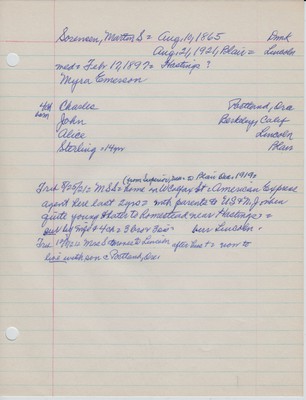 Sorensen, Morten S = Aug. 14, 1865 Dmk
Aug. 21, 1921, Blair = Lincoln
med = Feb 17, 1897 = Hastings ?
Myra Emerson
4th born Charles Portland, Ore
John Berkeley, Calif
Alice Lincoln
Sterling = 14yr Blair
(from Superior, to Blair Dec. 1919)
Trib 8/25/21 = M S d = home on St = American Express
agent here last 2 yrs = with parents to US & N.J. when
quite young & later to homestead near Hastings =
sur by wife & 4 ch = 3 bro 3 sis bur Lincoln.
Trib = Mrs S moves to Lincoln after = now to
live with son C Portland, Ore.